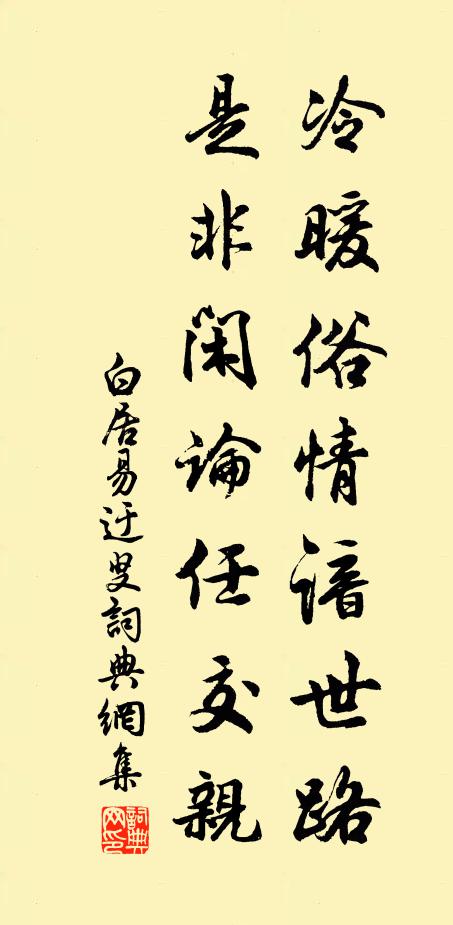 冷暖俗情諳世路
是非閑論任交親
白居易迂叟詞典網集
詞典網印